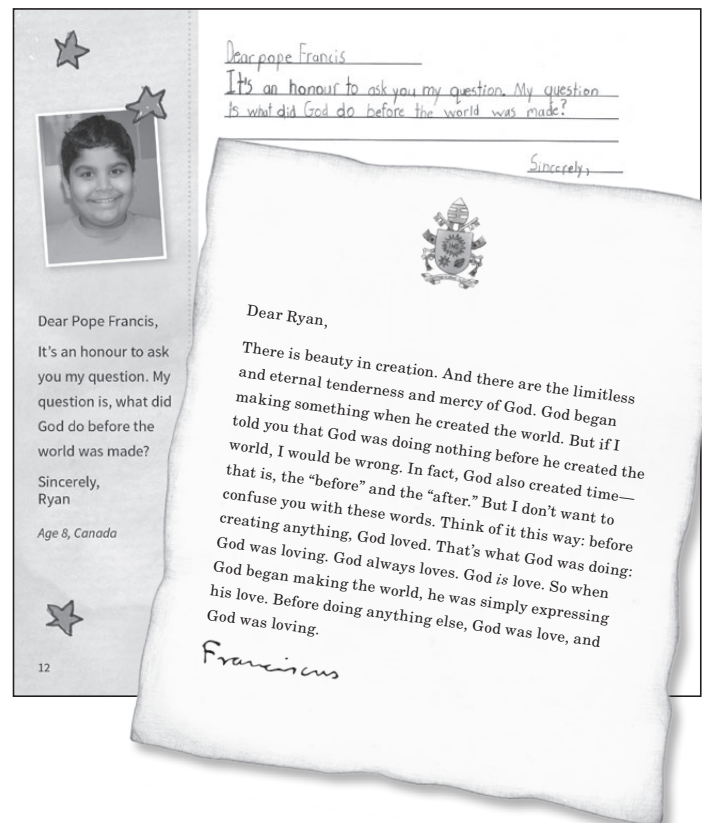 Dear pope Francis
It's an honour to ask you my question. My question
is what did God do before the world was made?
Sincerely,
Dear Pope Francis,
It's an honour to ask
you my question. My
question is, what did
God do before the
world was made?
Sincerely,
Ryan
Age 8, Canada
12
Dear Ryan,
There is beauty in creation. And there are the limitless
and eternal tenderness and mercy of God. God began
making something when he created the world. But if I
told you that God was doing nothing before he created the
world, I would be wrong. In fact, God also created time—
that is, the “before” and the “after.” But I don’t want to
confuse you with these words. Think of it this way: before
creating anything, God loved. That’s what God was doing:
God was loving. God always loves. God is love. So when
God began making the world, he was simply expressing
his love. Before doing anything else, God was love, and
God was loving.
Franciscus